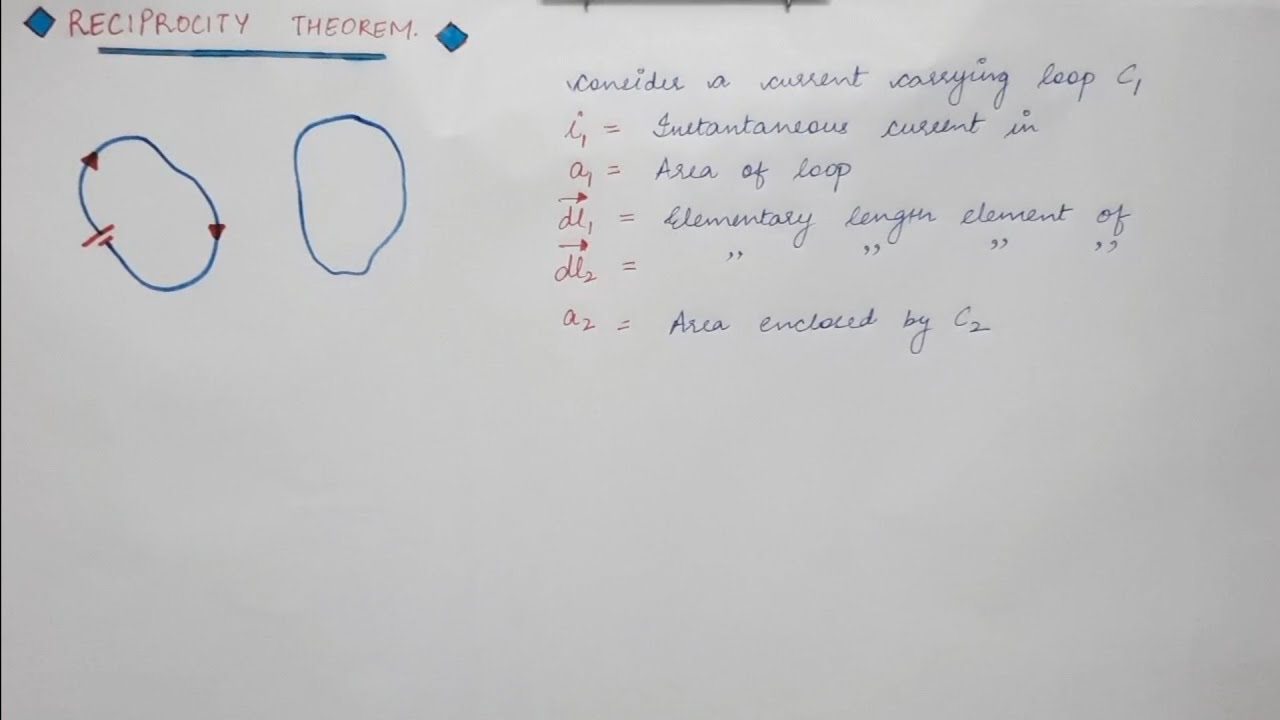 RECIPROCITY THEOREM.
Consider a current carrying loop C₁
i₁ = Instantaneous current in
a₁ = Area of loop
dl₁ = Elementary length element of
dl₂ = ,, ,, ,, ,,
a₂ = Area enclosed by C₂